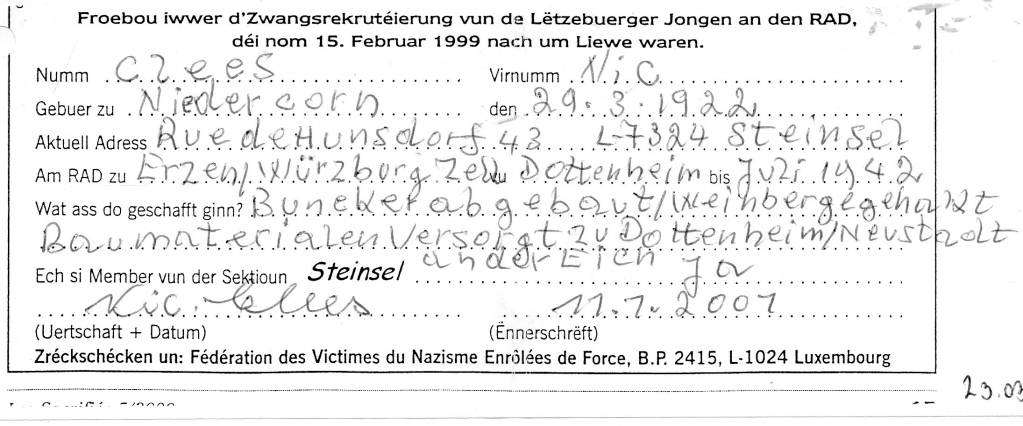 Froebou iwwer d'Zwangsrekrutéierung vun de Lëtzebuerger Jongen an den RAD,
déi nom 15. Februar 1999 nach um Liewe waren.
Numm Clees Virnumm Nic
Gebuer zu Niedercorn den 29.3.1922
Aktuell Adress Rue de Hunsdorf 43 L-7324 Steinsel
Am RAD zu Erzen/Würzburg Zell zu Dottenheim bis Juli 1942
Wat ass do geschafft ginn? Buneker abgebaut/Weinberge gehackt
Baumaterialen Versorgt zu Dottenheim/Neustadt
an der Eich
Ech si Member vun der Sektioun Steinsel Ja
Nic. Clees 11.7.2001
(Uertschaft + Datum) (Ënnerschrëft)
Zréckschécken un: Fédération des Victimes du Nazisme Enrôlées de Force, B.P. 2415, L-1024 Luxembourg
23.03